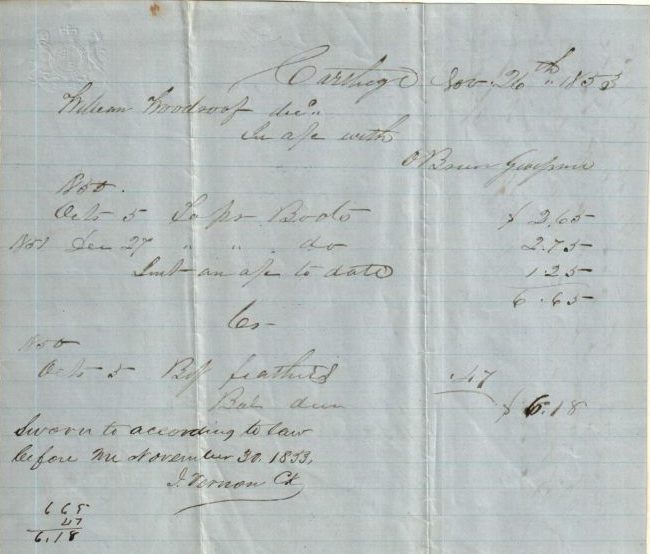 Carthage Nov. 26th 1853
William Woodroof decd
In a/c with
O Brien
1850.
Octo 5 To pr Boots $ 2.65
Dec 27 " " do 2.75
Int on a/c to date 1.25
6.65
Cr
1850
Octo 5 By feathers .47
Bal due $ 6.18
Sworn to according to law
before me November 30. 1853.
J. Vernon Ck
665
47
6.18